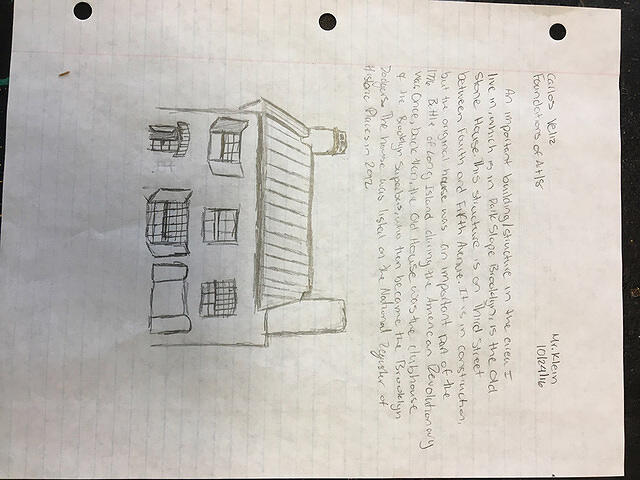 Carlos Veliz
Mr. Klein
Foundations of Art/8
10/24/16
An important building/structure in the area I
live in which is in Park Slope Brooklyn, is the Old
Stone House. This structure is on Third Street
between Fourth and Fifth Avenue. It is in construction,
but the original house was an important part of the
1776 Battle of Long Island during the American Revolutionary
war. Once, back then the Old House was the clubhouse
of the Brooklyn Superbas, who then became the Brooklyn
Dodgers. The house was listed on the National Register of
Historic Places in 2012